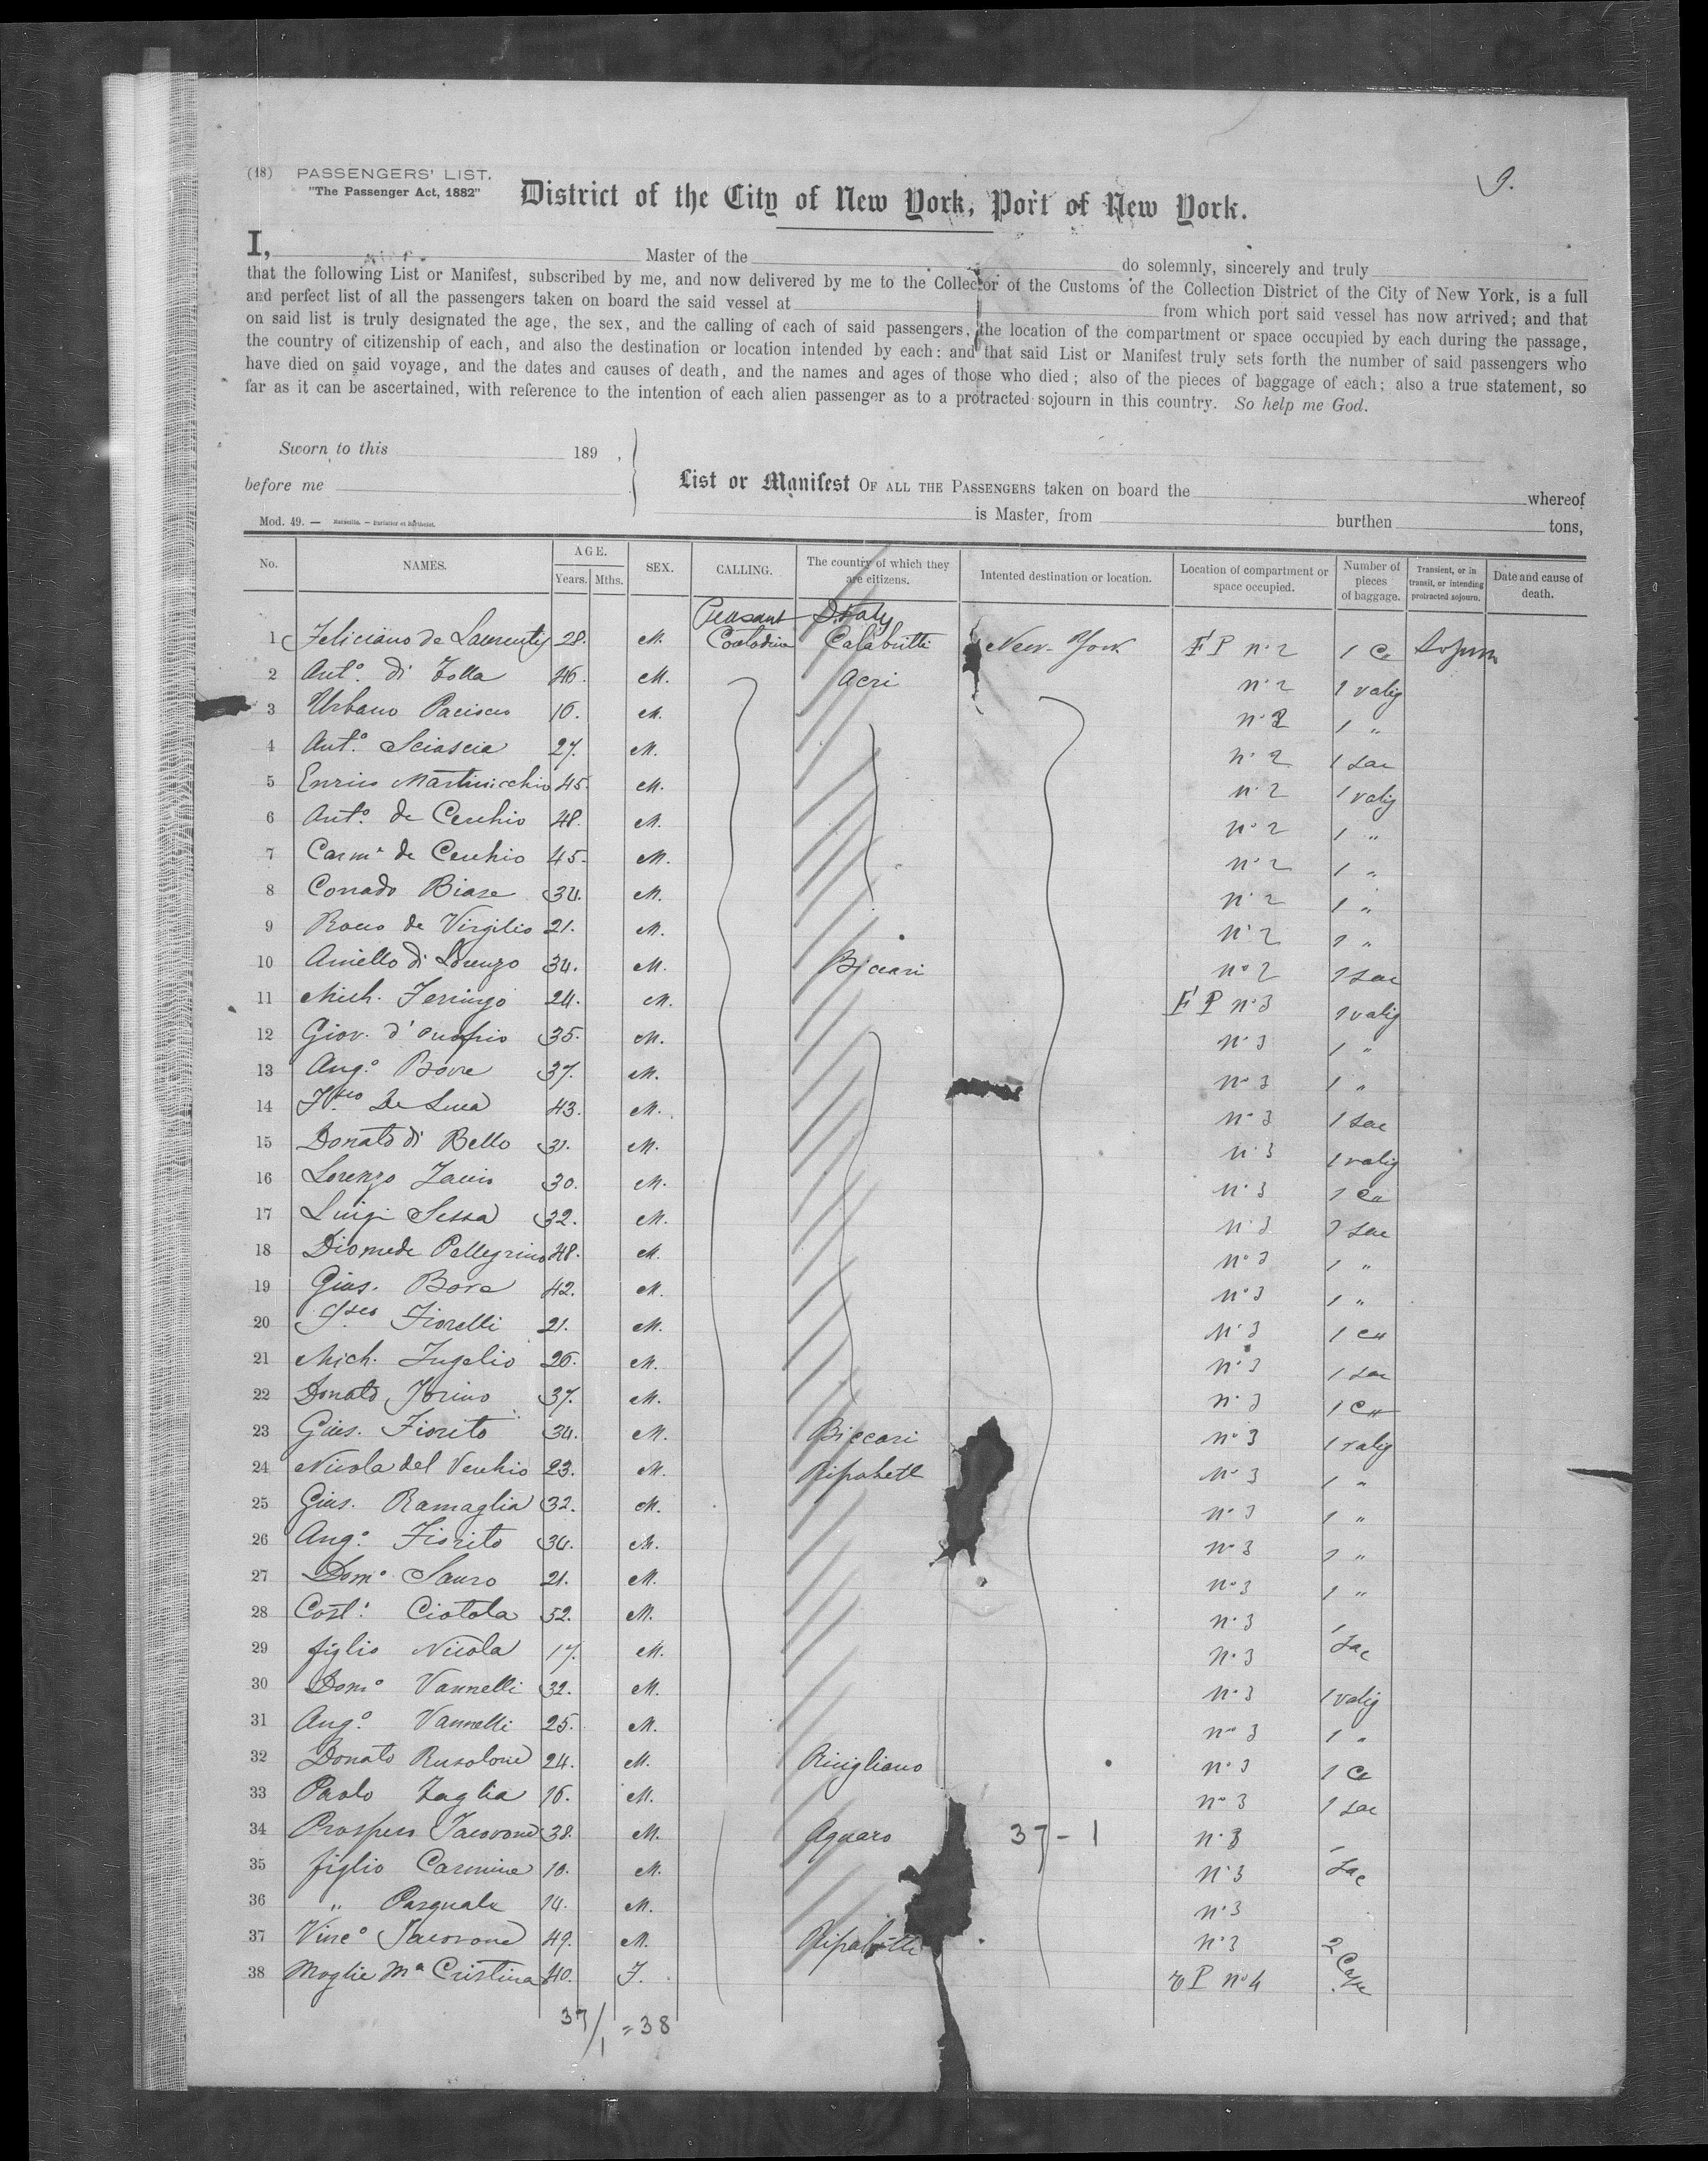 (18) PASSENGERS' LIST.
"The Passenger Act, 1882"
9.
District of the City of New York, Port of New York.
I, Master of the do solemnly, sincerely and truly
that the following List or Manifest, subscribed by me, and now delivered by me to the Collector of the Customs of the Collection District of the City of New York, is a full
and perfect list of all the passengers taken on board the said vessel at from which port said vessel has now arrived; and that
on said list is truly designated the age, the sex, and the calling of each of said passengers, the location of the compartment or space occupied by each during the passage,
the country of citizenship of each, and also the destination or location intended by each: and that said List or Manifest truly sets forth the number of said passengers who
have died on said voyage, and the dates and causes of death, and the names and ages of those who died; also of the pieces of baggage of each; also a true statement, so
far as it can be ascertained, with reference to the intention of each alien passenger as to a protracted sojourn in this country. So help me God.
Sworn to this 189 ,
before me
List or Manifest OF ALL THE PASSENGERS taken on board the whereof
is Master, from burthen tons,
Mod. 49. — Marseille. —
No. NAMES. AGE. Years. Mths. SEX. CALLING. The country of which they are citizens. Intented destination or location. Location of compartment or space occupied. Number of pieces of baggage. Transient, or in transit, or intending protracted sojourn. Date and cause of death.
Peasant Italy
1 Feliciano de Laurentis 28. M. Contadino New-York F P n. 2 1 Ca Sojurn
2 Ant.o di Zolla 46. M. Acri n. 2 1 valig
3 Urbano 16. M. n. 2 1 "
4 Ant.o Sciascia 27. M. n. 2 1 sac
5 Enrico Martinicchio 45. M. n. 2 1 valig
6 Ant.o de Cerchio 48. M. n. 2 1 "
7 Carm.e de Cerchio 45. M. n. 2 1 "
8 Corrado Biase 34. M. n. 2 1 "
9 Rocco de Virgilio 21. M. n. 2 1 "
10 Aniello di Lorenzo 34. M. Biccari no 2 1 sac
11 Mich. 24. M. F P n. 3 1 valig
12 Giov. d'Onofrio 35. M. n. 3 1 "
13 Ang.o Bove 37. M. no 3 1 "
14 F.sco De Luca 43. M. n. 3 1 sac
15 Donato di Bello 31. M. n. 3 1 valig
16 Lorenzo 30. M. n. 3 1 Ca
17 Luigi Sessa 32. M. n. 3 1 sac
18 Diomede Pellegrino 48. M. no 3 1 "
19 Gius. Bove 42. M. no 3 1 "
20 F.sco Fiorelli 21. M. n. 3 1 Ca
21 Mich. 26. M. n. 3 1 sac
22 Donato 37. M. n. 3 1 Ca
23 Gius. Fiorito 34. M. Biccari no 3 1 valig
24 Nicola del Vecchio 23. M. Ripabott n. 3 1 "
25 Gius. Ramaglia 32. M. n. 3 1 "
26 Ang.o Fiorito 34. M. no 3 1 "
27 Dom.o Sauro 21. M. no 3 1 "
28 Cost. Ciotola 52. M. n. 3 1
29 figlio Nicola 17. M. n. 3 sac
30 Dom.o Vannelli 32. M. n. 3 1 valig
31 Ang.o Vannelli 25. M. no 3 1 "
32 Donato 24. M. Ricigliano n. 3 1 Ca
33 Paolo Zaglia 16. M. no 3 1 sac
34 Prospero Iacovone 38. M. Aquaro 37-1 n. 3 1
35 figlio Carmine 10. M. n. 3 sac
36 " Pasquale 14. M. n. 3
37 Vinc.o Iacovone 49. M. Ripabotti n. 3 2
38 Moglie M.a Cristina 40. F. P no 4
37/1 = 38